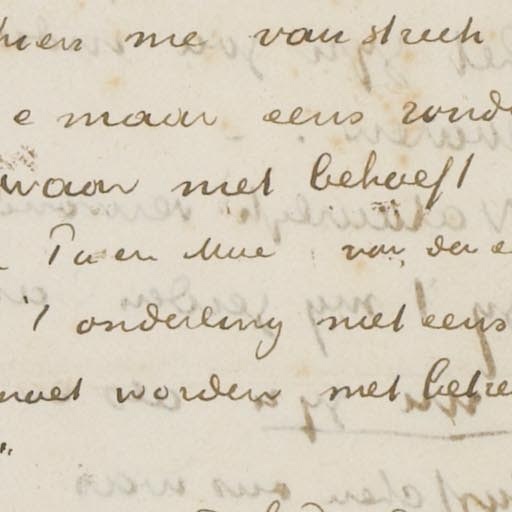 me van streek
e maar eens rond
waar niet behoeft
Pa en Moe van de
't onderling niet eens
moet worden met betre
"